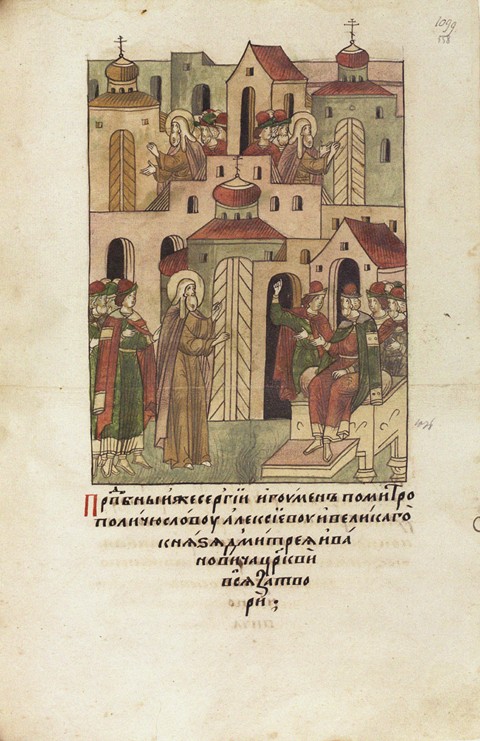 1099
558
Прпдбныи же сергіи игоуменъ помитро
поличю словоу алексіевоу и великаго
кнѧзѧ дмитреѧ ива
новича цркви
всѧ затво
ри ;